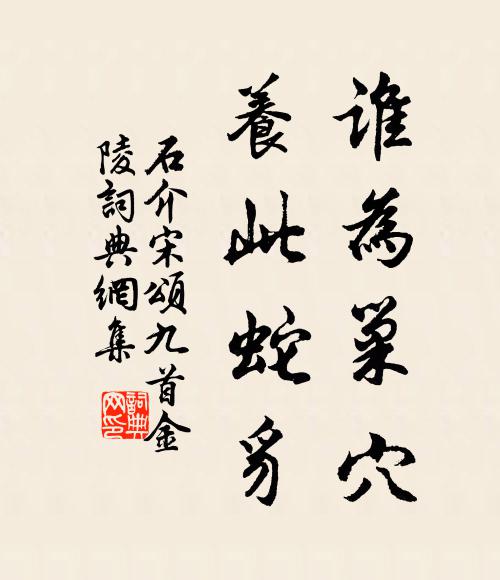 誰為巢穴
養此蛇豸
石介宋頌九首金
陵詞典網集
詞典网印